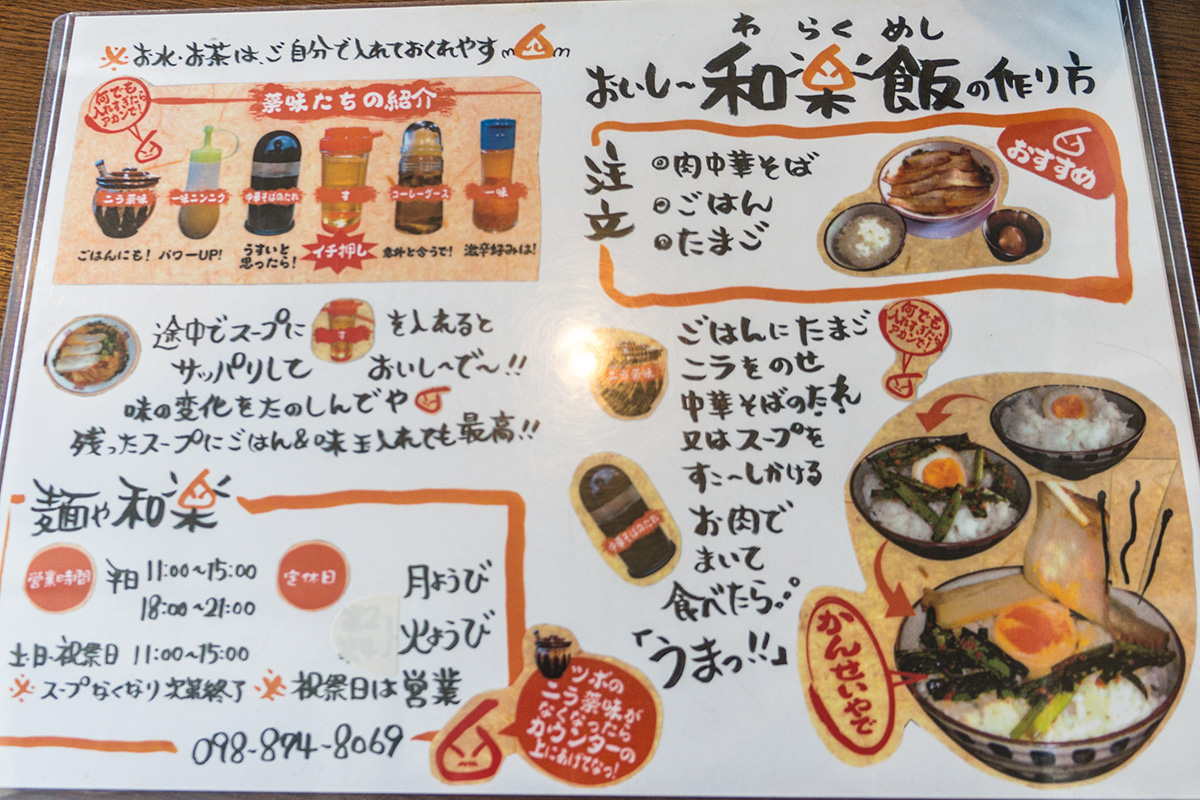 ※お水・お茶は、ご自分で入れておくれやす
何でも
入れすぎたら
アカンで!
薬味たちの紹介
ニラ薬味
一味ニンニク
中華そばのたれ
す
コーレーグース
一味
ごはんにも!
パワーUP!
うすいと
思ったら!
イチ押し
意外と合うで!
激辛好みは!
途中でスープに す を入れると
サッパリして おいし〜で〜!!
味の変化をたのしんでや
残ったスープにごはん&味玉入れても最高!!
麺や和楽
営業時間
平日 11:00〜15:00
18:00〜21:00
土・日・祝祭日 11:00〜15:00
※スープなくなり次第終了
定休日
月ようび
火ようび
※祝祭日は営業
098-874-8069
ツボの
ニラ薬味が
なくなったら
カウンターの
上にあげてなっ!
わらくめし
おいし〜和楽飯の作り方
おすすめ
注立
◎肉中華そば
◎ごはん
◎たまご
ニラ薬味
ごはんにたまご
ニラをのせ
中華そばのたれ
又はスープを
すこ〜しかける
何でも
入れすぎたら
アカンで!
中華そばのたれ
お肉で
まいて
食べたら…
「うまっ!!」
かんせいやで